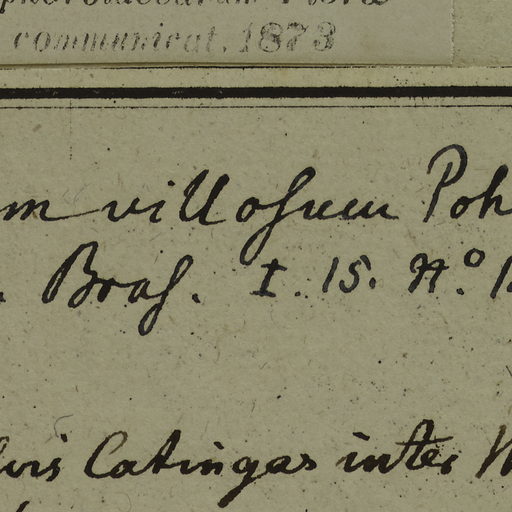 communicat. 1873
m villosum Poh
Bras. I. 15. N.º 1
lvis Catingas inter